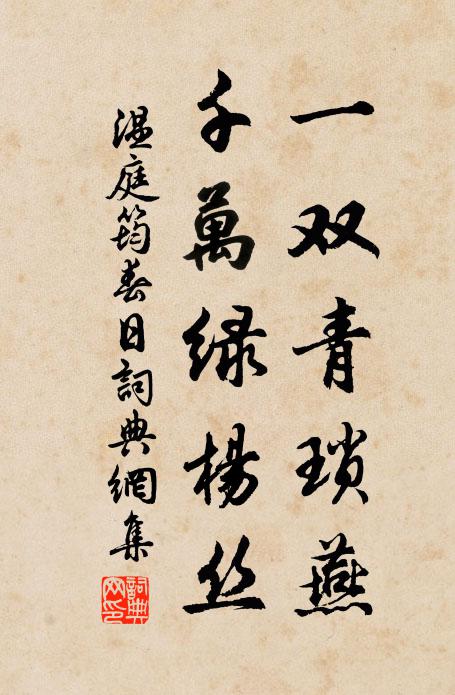 一双青瑣燕
千萬绿楊丝
温庭筠春日詞典網集
詞典网印